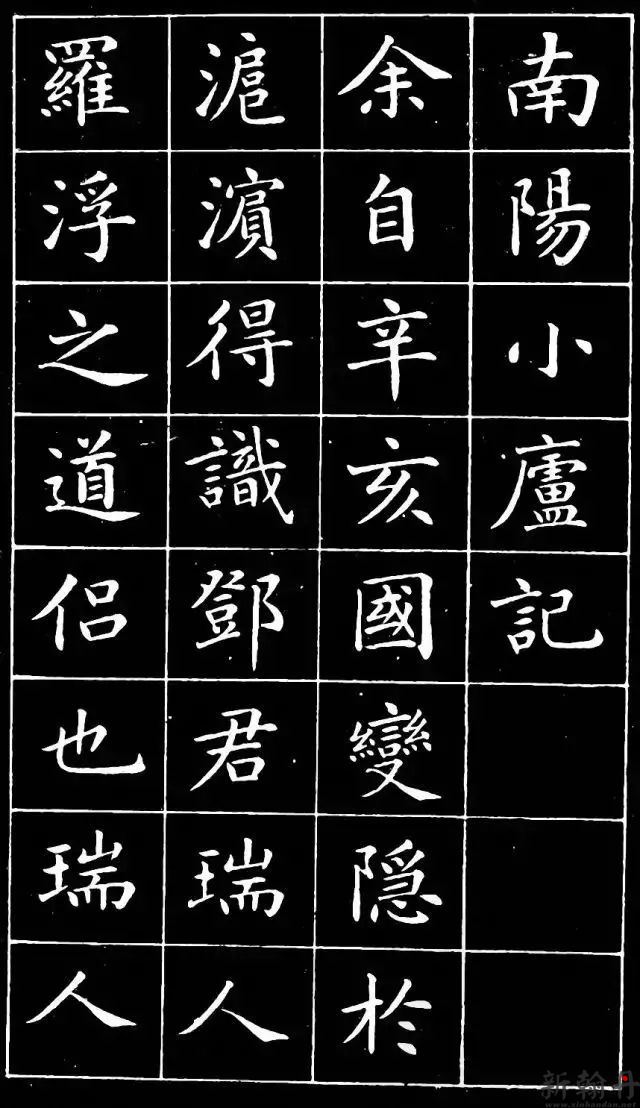 南陽小廬記
余自辛亥國變隱於
滬濵得識鄧君瑞人
羅浮之道侣也瑞人
新翰丹
www.xinhandan.net